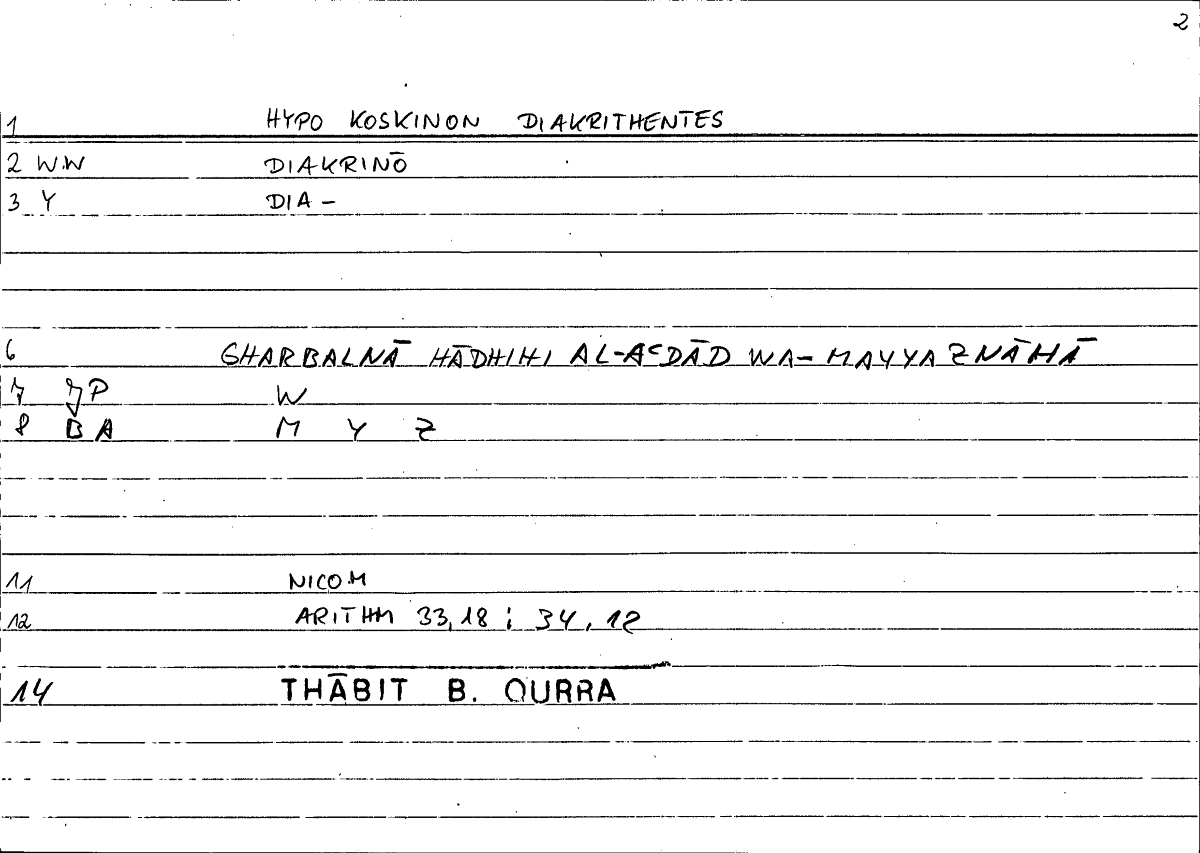 2
1 HYPO KOSKINON DIAKRITHENTES
2 W.W DIAKRINŌ
3 Y DIA –
6 GHARBALNĀ HĀDHIHI AL-AʿDĀD WA- MAYYAZNĀHĀ
7 JP W
8 BA M Y Z
11 NICOM
12 ARITHM 33,18 ; 34,12
14 THĀBIT B. QURRA